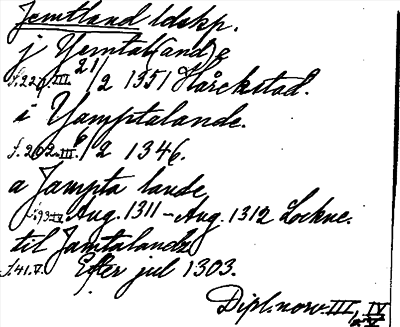 Jemtland ldskp.
j Yemtal(and)e
s.220.III. 21/2 1351 Hårekstad.
i Yamptalande.
s.202.III. 6/2 1346.
a Jampta lande
s.93.IV. Aug. 1311 – Aug. 1312 Lockne.
til Jamtalandz
s.41.V. Efter jul 1303.
Dipl. norv. III, IV
o. V.